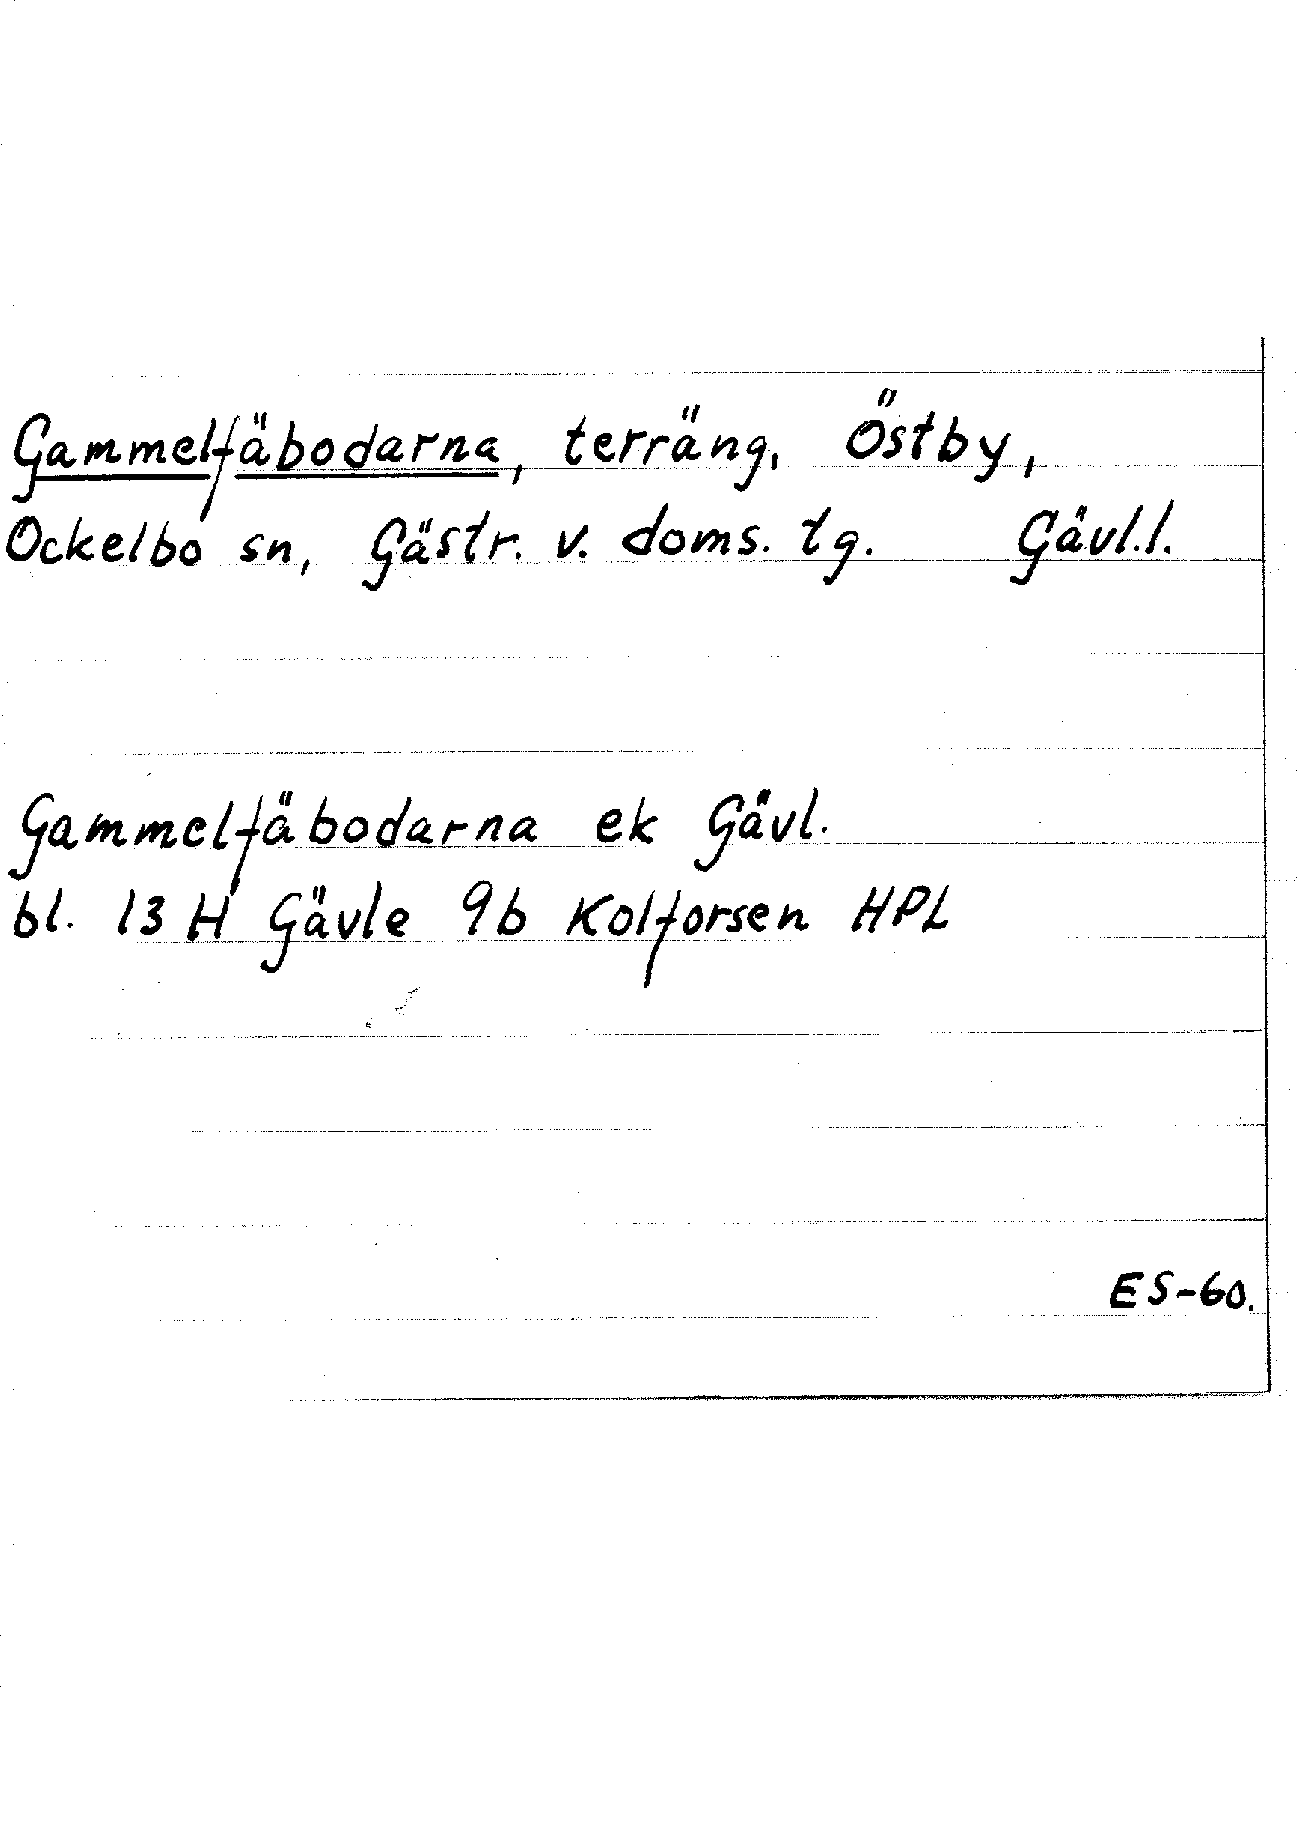 Gammelfäbodarna, terräng, Östby,
Ockelbo sn, Gästr. v. doms. tg. Gävl.l.
Gammelfäbodarna ek Gävl.
bl. 13 H Gävle 9b Kolforsen HPL
ES-60.